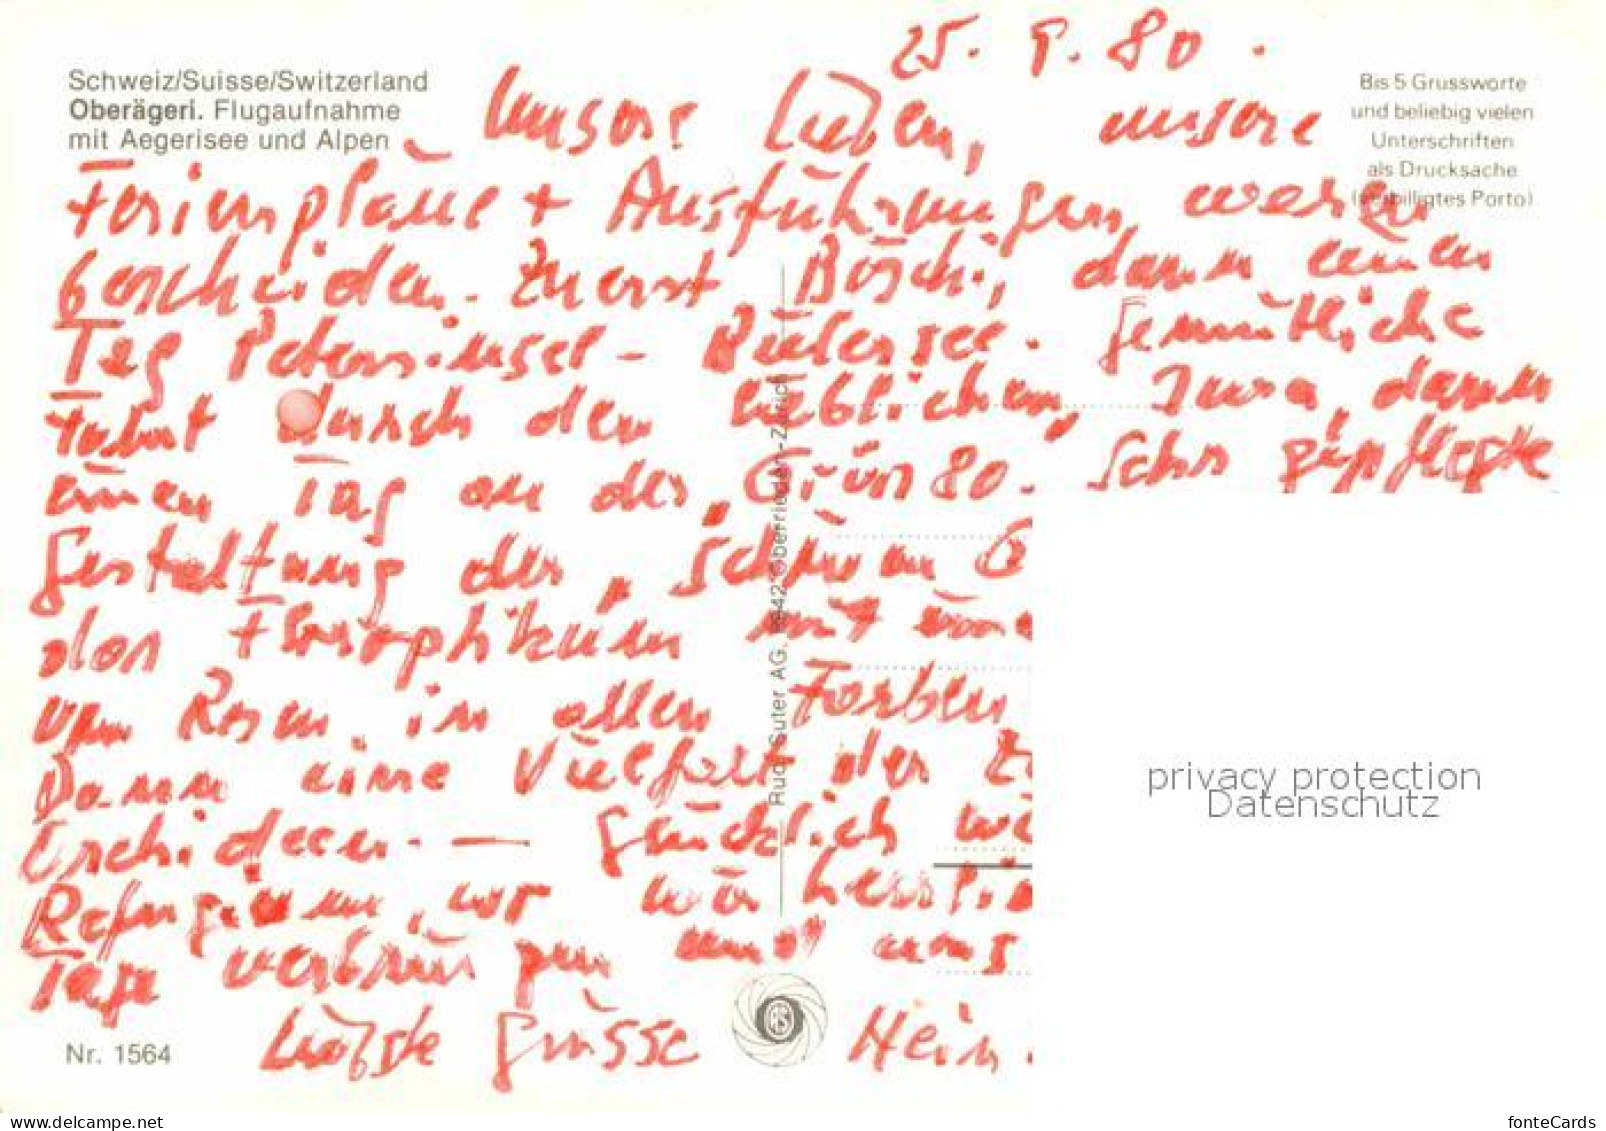 25. 8. 80.
Schweiz/Suisse/Switzerland
Oberägeri. Flugaufnahme
mit Aegerisee und Alpen
Bis 5 Grussworte
und beliebig vielen
Unterschriften
als Drucksache
(verbilligtes Porto)
Unsere Lieben, unsere
Ferienpläne + Ausführungen waren
bescheiden. Zuerst Böschi, dann einen
Tag Petersinsel - Bielersee. Gemütliche
Fahrt durch den lieblichen Jura, dann
einen Tag an der „Grün 80. Sehr gepflegte
Gestaltung der „Schönen G
von Rosen in allen Farben
Dann eine Vielfalt der
Orchideen. — Glücklich
Refugium, wo wir
Tage verbringen und uns
Liebste Grüsse Hein
Rud. Suter AG, 8942 Oberrieden-Zürich
RS
Nr. 1564
privacy protection
Datenschutz
www.delcampe.net
fonteCards